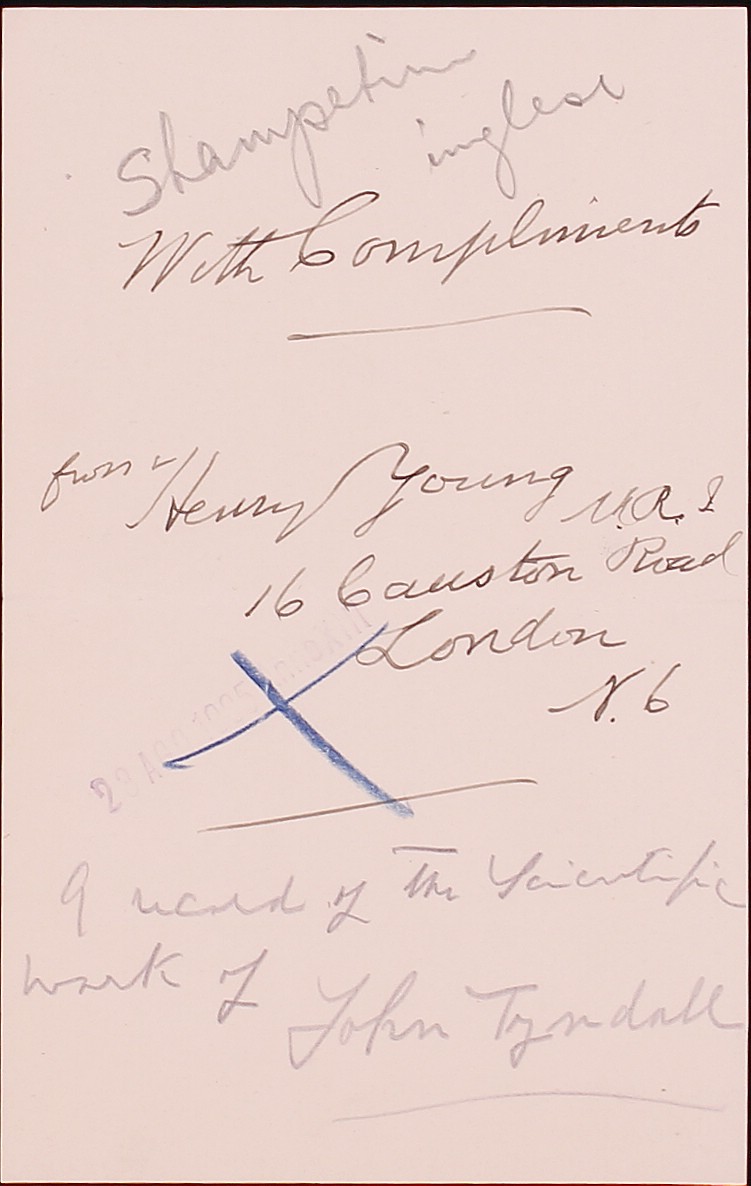 inglese
With Compliments
from Henry Young M.R.I
16 Causton Road
London
N.6
23 AGO 1935 Anno XIII
A record of the Scientific
work of
John Tyndall